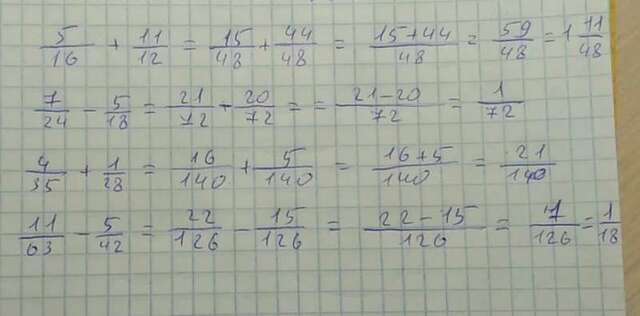 5/16 + 11/12 = 15/48 + 44/48 = 15+44/48 = 59/48 = 1 11/48
7/24 - 5/18 = 21/72 + 20/72 = = 21-20/72 = 1/72
4/35 + 1/28 = 16/140 + 5/140 = 16+5/140 = 21/140
11/63 - 5/42 = 22/126 - 15/126 = 22-15/126 = 7/126 = 1/18